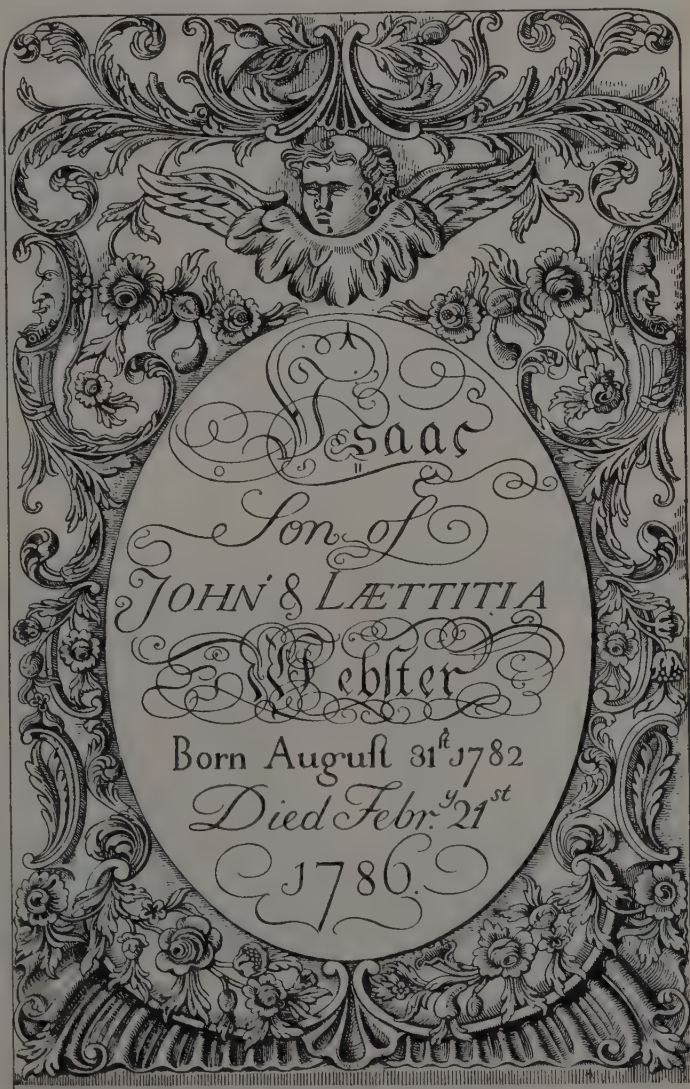 Isaac
Son of
JOHN & LÆTTITIA
Webſter
Born Auguſt 31ſt 1782
Died Febr.y 21st
1786.